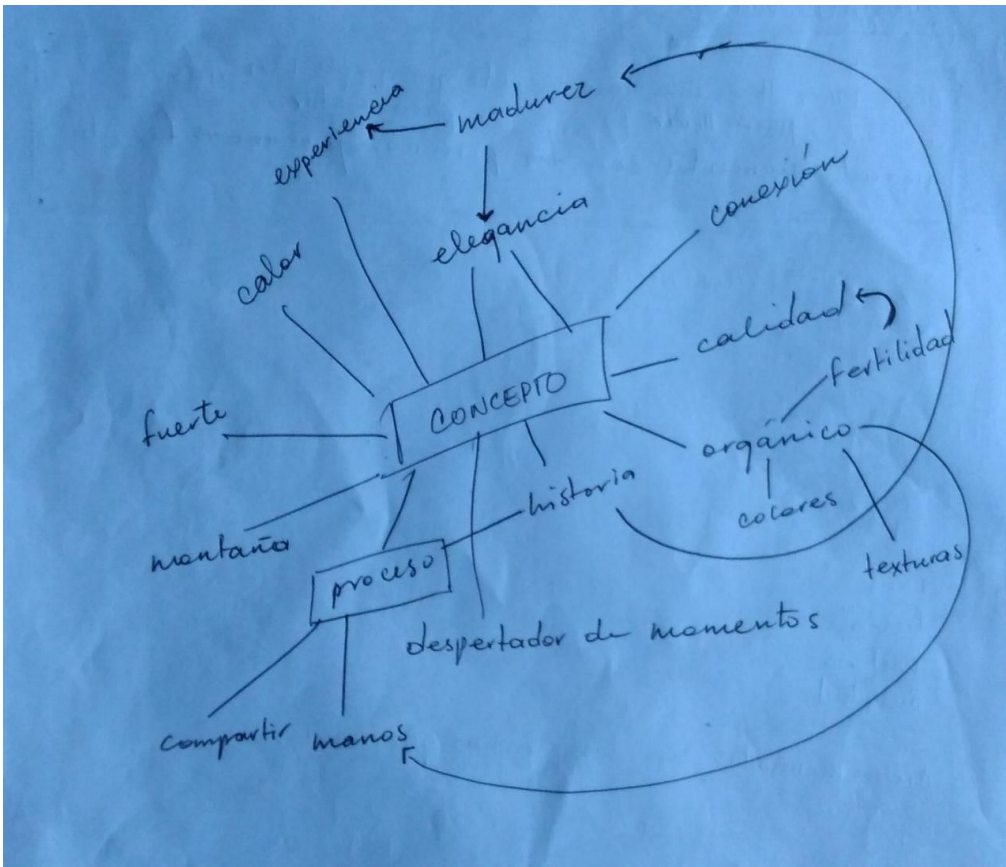 experiencia
madurez
elegancia
conexión
calor
calidad
fertilidad
CONCEPTO
fuerte
orgánico
historia
colores
montaña
texturas
proceso
despertador de momentos
compartir
manos